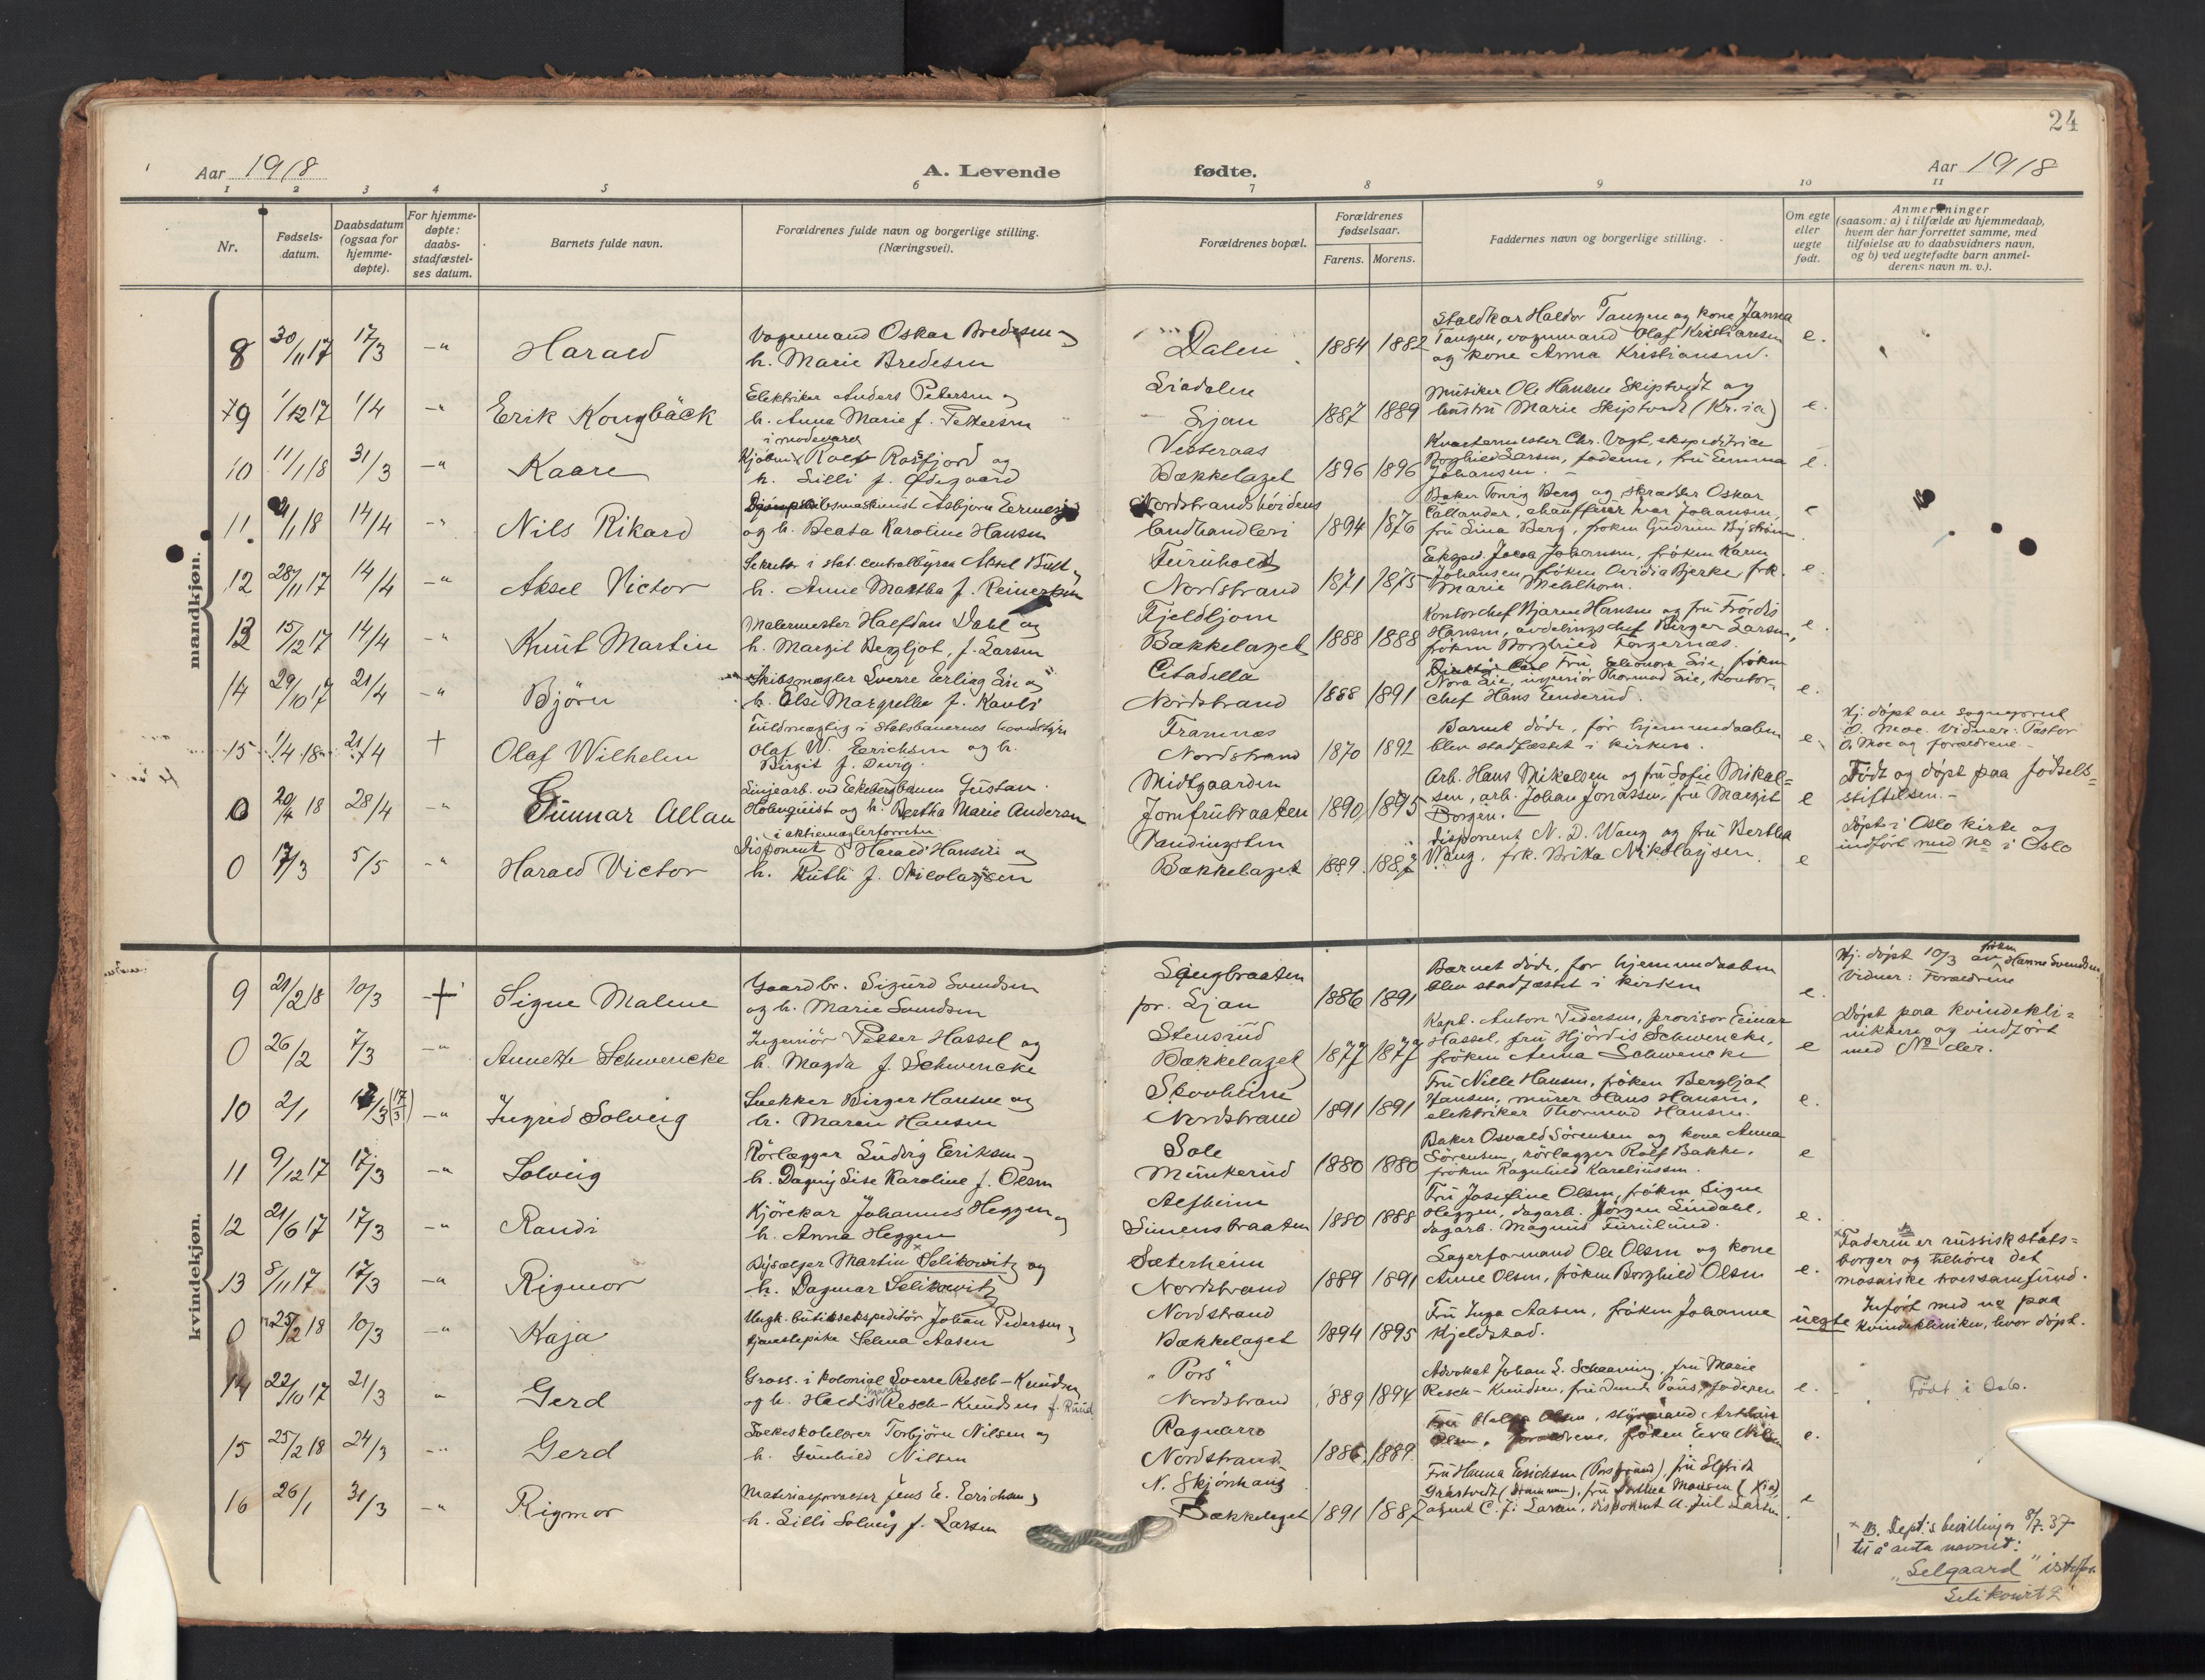 24
Aar 1918
A. Levende
fødte.
Aar 1918
1 2 3 4 5 6 7 8 9 10 11
Nr.
Fødsels-
datum.
Daabsdatum
(ogsaa for
hjemme-
døpte).
For hjemme-
døpte:
daabs-
stadfæstel-
ses datum.
Barnets fulde navn.
Forældrenes fulde navn og borgerlige stilling.
(Næringsvei).
Forældrenes bopæl.
Forældrenes
fødselsaar.
Farens. Morens.
Faddernes navn og borgerlige stilling.
Om egte
eller
uegte
født.
Anmerkninger
(saasom: a) i tilfælde av hjemmedaab,
hvem der har forrettet samme, med
tilføielse av to daabsvidners navn,
og b) ved uegtefødte barn anmel-
derens navn m. v.).
mandkjøn.
8 30/11 17 17/3 -"- Harald
Vognmand Oskar Bredesen og
h. Marie Bredesen
Dalen 1884 1882
Staldkar Haldor Tangen og kone Janna
Tangen, vognmand Olaf Kristiansen
og kone Anna Kristiansen.
e.
9 1/12 17 1/4 -"- Erik Kongbäck
Elektriker Anders Petersen og
h. Anna Marie f. Pettersen
Liadalen
Ljan 1887 1889
Musiker Ole Hansen Skiptvedt og
hustru Marie Skiptvedt (Kr.ia)
e.
10 11/1 18 31/3 -"- Kaare
i modevarer
Kjøbm. Rolf Rosfjord og
h. Lilli f. Ødegaard
Vesteraas
Bækkelaget 1896 1896
Kvartermester Chr. Vogt, ekspeditrice
Borghild Larsen, faderen, fru Emma
Johansen.
e.
11. 21/1 18 14/4 -"- Nils Rikard
og h. Beata Karoline Hansen
Nordstrandshöidens
landhandleri 1894 1876
Baker Tonrig Berg og skrædder Oskar
Callander, chauffeur Ivar Johansen,
fru Lina Berg, frøken Gudrun Byström.
e
12 28/11 17 14/4 -"- Aksel Victor
Sekretær i stat. centralbyraa Aksel Bull og
h. Anne Martha f. Reinertsen
Furuholdt
Nordstrand 1871 1875
Eksped. Jacob Johansen, frøken Karen
Johansen, frøken Ovidia Bjerke, frk.
Marie Mehlhorn.
e.
13 15/12 17 14/4 -"- Knut Martin
Malermester Halfdan Dahl og
h. Margit Bergljot, f. Larsen
Fjeldljom
Bækkelaget 1888 1888
Kontorchef Bjarne Hansen og fru Frøidis
Hansen, avdelingschef Birger Larsen,
frøken Borghild Torgersnæs.
e.
14 29/10 17 21/4 -"- Björn
Skibsmægler Sverre Erling Lie og
h. Else Margrethe f. Kavli
Citadella
Nordstrand 1888 1891
Fru Eleonora Lie, frøken
Nora Lie, ingeniør Thormod Lie, kontor-
chef Hans Enderud.
e.
15 1/4 18 21/4 + Olaf Wilhelm
Fuldmægtig i Statsbanernes hovedstyre
Olaf W. Erichsen og h.
Birgit f. Durg.
Framnæs
Nordstrand 1870 1892
Barnet døde, før hjemmedaaben
blev stadfæstet i kirken.
e.
Hj. døpt av sogneprest
O. Moe. Vidner: Pastor
O. Moe og forældrene.
0 20/4 18 28/4 -"- Gunnar Allan
Linjearb. ved Ekebergbanen Gustav
Holmquist og h. Bertha Marie Andersen
Midtgaarden
Jomfrubraaten 1890 1895
Arb. Hans Mikalsen og fru Sofie Mikal-
sen, arb. Johan Jonassen, fru Margit
Borgen.
e
Født og døpt paa fødsels-
stiftelsen.
0 17/3 5/5 -"- Harald Victor
i aktiemæglerforretn.
Disponent Harald Hansen og
h. Ruth f. Nicolaysen
Vandingsten
Bækkelaget 1889 1887
Disponent N. D. Wang og fru Bertha
Wang, frk. Brita Nikolaysen.
e
Døpt i Oslo kirke og
indført med No i Oslo
kvindekjøn.
9 21/2 18 10/3 + Signe Malene
Gaardbr. Sigurd Svendsen
og h. Marie Svendsen
Ljungbraaten
pr. Ljan 1886 1891
Barnet døde, før hjemmedaaben
blev stadfæstet i kirken
e.
Hj. døpt 10/3 av frøken Hanne Svendsen
Vidner: Forældrene
0 26/2 7/3 -"- Annette Schwencke
Ingeniør Petter Hassel og
h. Magda f. Schwencke
Stensrud
Bækkelaget 1877 1877
Kapt. Anton Pedersen, provisor Einar
Hassel, fru Hjørdis Schwencke,
frøken Anna Schwencke
e
Døpt paa kvindekli-
nikken og indført
med No der.
10 2/1 17/3 (17/3) -"- Ingrid Solveig
Snekker Birger Hansen og
h. Maren Hansen
Skovheim
Nordstrand 1891 1891
Fru Nille Hansen, frøken Bergljot
Hansen, murer Hans Hansen,
elektriker Thormod Hansen.
e.
11 9/12 17 17/3 -"- Solveig
Rørlægger Ludvig Eriksen og
h. Dagny Lise Karoline f. Olsen
Sole
Munkerud 1880 1880
Baker Osvald Sørensen og kone Anna
Sørensen, rørlægger Rolf Bakke,
frøken Ragnhild Kareliussen.
e
12 21/6 17 17/3 -"- Randi
Kjørekar Johannes Heggen og
h. Anna Heggen
Alfheim
Simensbraaten 1880 1888
Fru Josefine Olsen, frøken Signe
Heggen, dagarb. Jørgen Lindahl,
dagarb. Magnus Furulund.
e.
13 8/11 17 17/3 -"- Rigmor
Bysælger Martin Selikowitz og
h. Dagmar Selikowitz
Sæterheim
Nordstrand 1889 1891
Lagerformand Ole Olsen og kone
Anne Olsen, frøken Borghild Olsen
e.
Faderen er russisk stats-
borger og tilhører det
mosaiske troessamfund.
0 25/2 18 10/3 -"- Kaja
Ungk. butiksekspeditør Johan Pedersen og
tjenestepike Selma Aasen
Nordstrand
Bækkelaget 1894 1895
Fru Inga Aasen, frøken Johanne
Kjeldstad.
uegte
Inført med no paa
Kvindekliniken, hvor døpt.
14 22/10 17 21/3 " Gerd
Gross. i kolonial Sverre Resch-Knudsen
og h. Haldis Resch-Knudsen f. Ruud
"Pors"
Nordstrand 1889 1894
Advokat Johan L. Schaanning, fru Marie
Resch-Knudsen, faderen
e.
Født i Oslo.
15 25/2 18 24/3 -"- Gerd
Folkeskolelærer Torbjørn Nilsen og
h. Gunhild Nilsen
Ragnarro
Nordstrand 1886 1889.
Fru Helga Olsen, styrmand Arthur
Olsen, forældrene, frøken Eva Nilsen
e.
16 26/1 31/3 -"- Rigmor
Materialforvalter Jens E. Erichsen og
h. Lilli Solveig f. Larsen
N. Skjønhaug
Bækkelaget 1891 1887
Fru Hanna Erichsen (Porsgrund), fru Elfrida
agent C. J. Larsen, disponent A. Juul Larsen.
e
x JB. Dept.s bevilling av 8/7. 37
til å anta navnet:
"Selgaard" istedf.
Selikowitz